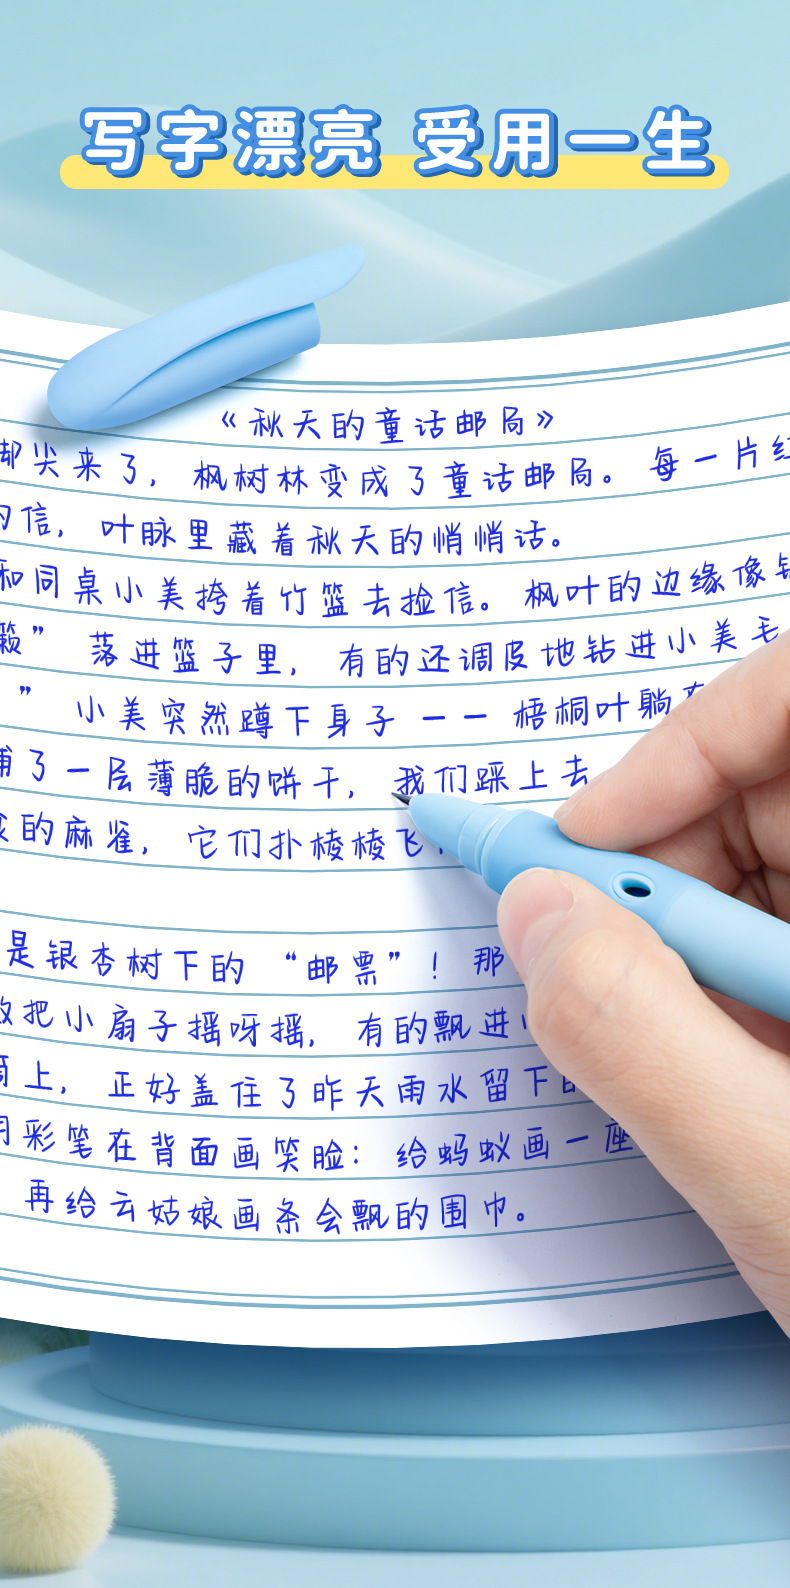 写字漂亮 受用一生
《秋天的童话邮局》
脚尖来了，枫树林变成了童话邮局。每一片红
的信，叶脉里藏着秋天的悄悄话。
和同桌小美挎着竹篮去捡信。枫叶的边缘像锯
籁”落进篮子里，有的还调皮地钻进小美毛
”小美突然蹲下身子——梧桐叶躺在
铺了一层薄脆的饼干，我们踩上去
的麻雀，它们扑棱棱飞
是银杏树下的“邮票”！那
把小扇子摇呀摇，有的飘进
筒上，正好盖住了昨天雨水留下的
用彩笔在背面画笑脸：给蚂蚁画一座
再给云姑娘画条会飘的围巾。